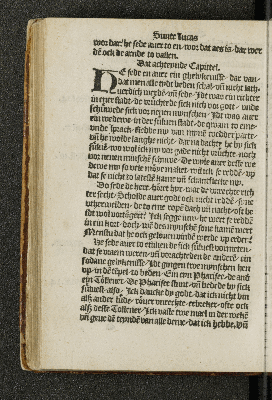 Sunte Lucas
wor dar: he sede auer to en: wor dat aes is, dar wer
den ock de arnde to vallen.
Dat achteynde Capittel.
HE sede en auer eyn ghelykenisse, dar van/
dat men alle tydt beden schal/ vn nicht
werden/ vn sede/ Jdt was ein richter
in eyner stadt/ de vruchtede sick nicht vor godt/ vnde
schuwede sick vor neynen mynschen/ Jdt was auer
ein wedewe in der suluen stadt/ de quam to eme
vnde sprack/ Redde my van mynem wedderparte/
vn he wolde langhe nicht/ dar na dachte he by sick
suluest/ wo wol ick my vor gade nicht vruchte/ noch
vor neinen minschen schuwe/ De wyle auer desse we
dewe my so vele moye maket/ wil ick se redden/ vp
dat se nicht to lateste kame vn
Do sede de here/ hoert hyr/ wat de
ter secht/ Scholde auer godt ock nicht redden/ sine
vtherwelden/ de to eme ropen dach vn nacht/
Jck segge iuw/ he wert se redden
in ein kort/ doch/ wen des mynschen sone kamen wert
Meynstu dat he ock gelouen werde vp erden?
He sede auer to etliken de sick suluest vormeten/
dat se vram weren/ vn verachteden de anderen/ ein
sodane gelykenisse/ Jdt gingen twe mynschen hen
vp/ in den tempel/ to beden/ Ein eyn Phariseer/ de ander
eyn Tollener/ De Phariseer stunt/ vn bedede by sick
suluest also/ Jck dancke dy godt/ dat ick nicht bin
alse ander lude/ rouer vnrechte/ eebreker/ ofte ock
alse desse Tollener/ Jck vaste twe mael in der weken
vn geue den teynden van alle deme/ dat ick hebbe/ vn